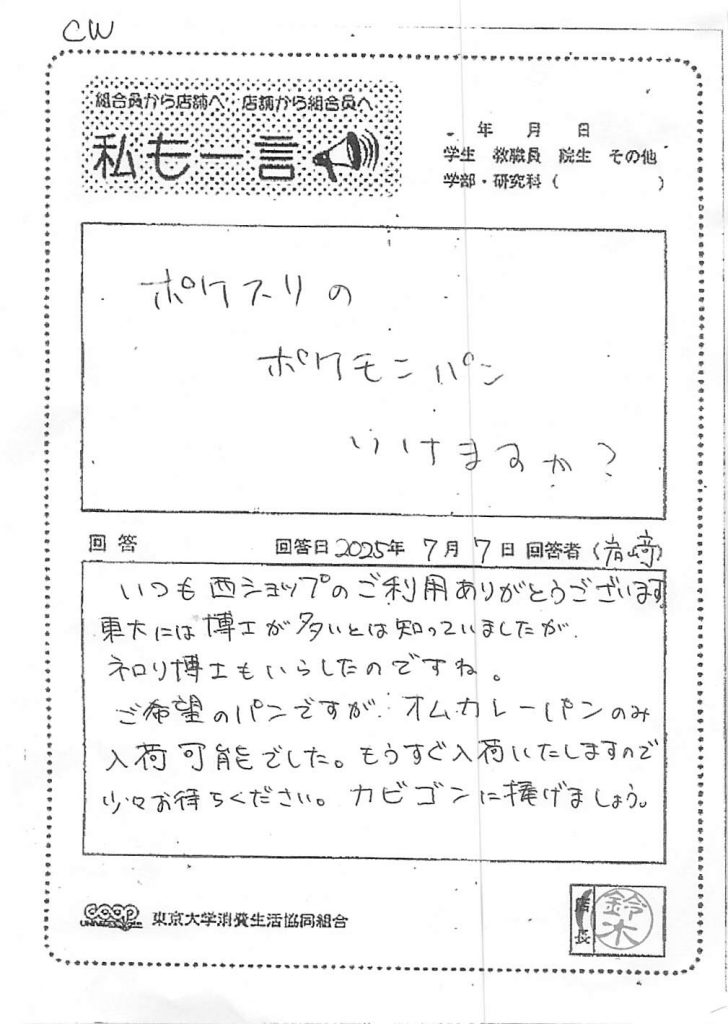 CW
組合員から店舗へ、店舗から組合員へ
私も一言
年 月 日
学生 教職員 院生 その他
学部・研究科( )
ポケスリの
ポケモンパン
いけますか?
回答 回答日 2025年 7月 7日 回答者(岩﨑)
いつも西ショップのご利用ありがとうございます。
東大には博士が多いとは知っていましたが、
ネロリ博士もいらしたのですね。
ご希望のパンですが、オムカレーパンのみ
入荷可能でした。もうすぐ入荷いたしますので
少々お待ちください。カビゴンに捧げましょう。
coop 東京大学消費生活協同組合
店長 鈴木